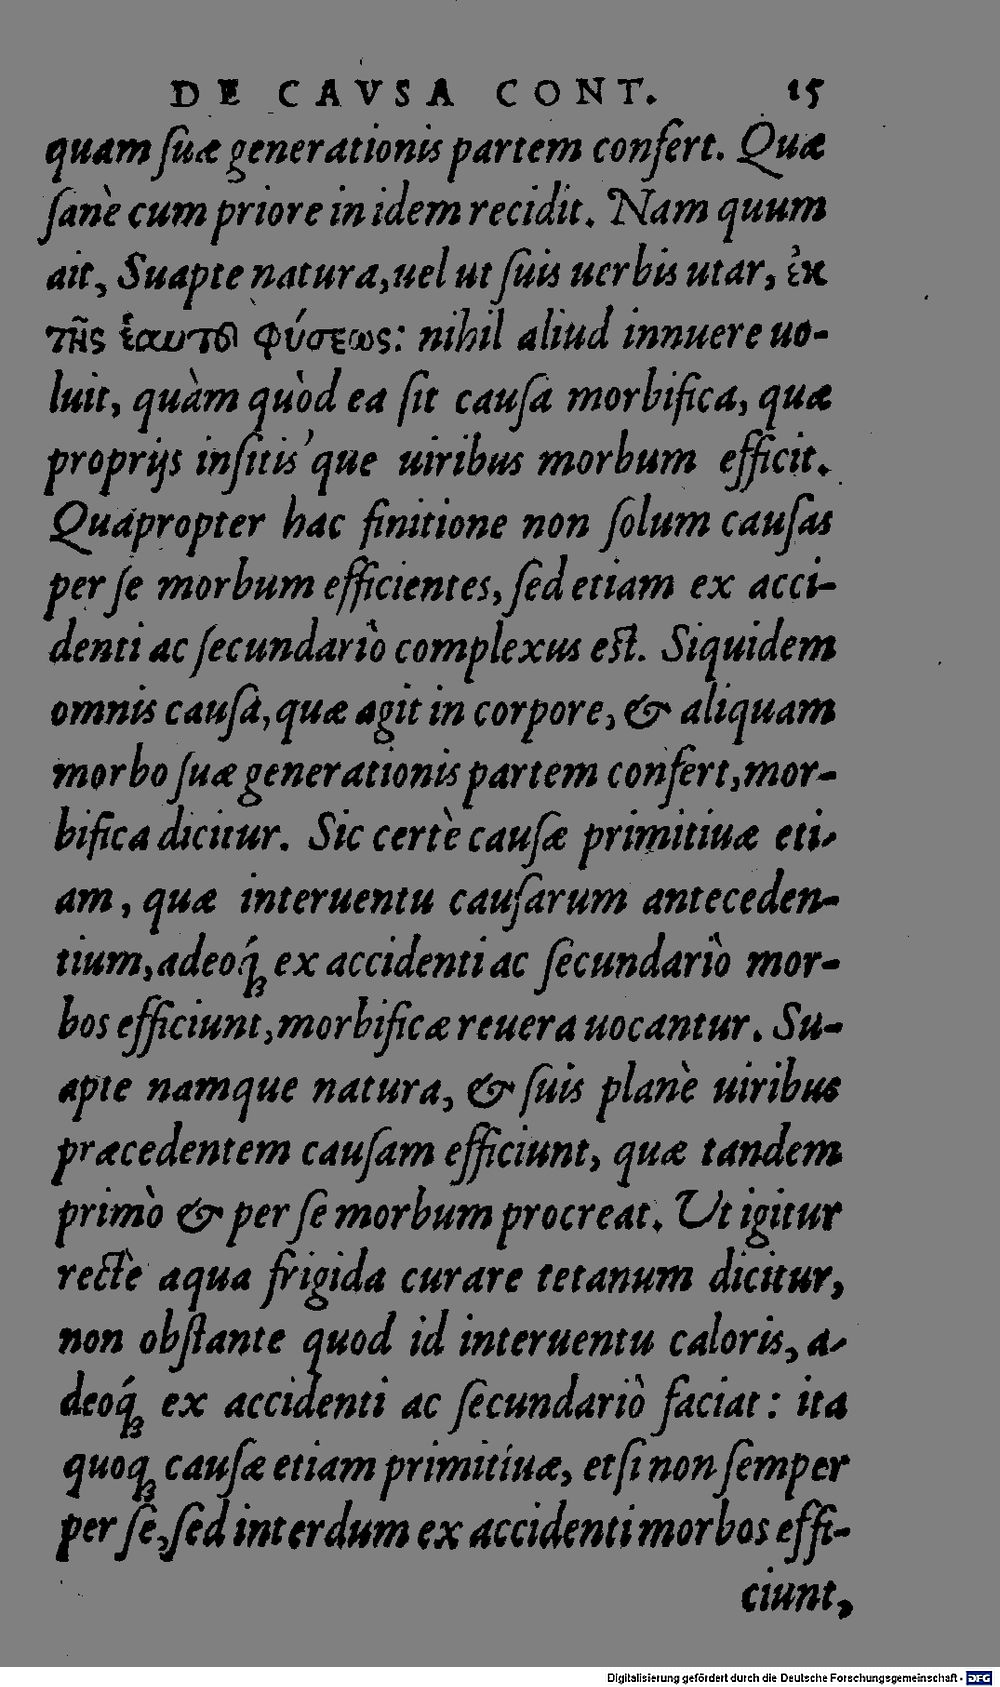 DE CAVSA CONT. 15
quam ſuæ generationis partem confert. Quæ
ſanè cum priore in idem recidit. Nam quum
ait, Suapte natura, uel ut ſuis uerbis utar, ἐκ
τῆς ἑαυτοῦ φύσεως: nihil aliud innuere uo-
luit, quàm quòd ea ſit cauſa morbifica, quæ
proprijs inſitis'que uiribus morbum efficit.
Quapropter hac finitione non ſolum cauſas
per ſe morbum efficientes, ſed etiam ex acci-
denti ac ſecundariò complexus eſt. Siquidem
omnis cauſa, quæ agit in corpore, & aliquam
morbo ſuæ generationis partem confert, mor-
bifica dicitur. Sic certè cauſæ primitiuæ eti-
am, quæ interuentu cauſarum anteceden-
tium, adeoq́ꝫ ex accidenti ac ſecundariò mor-
bos efficiunt, morbificæ reuera uocantur. Su-
apte namque natura, & ſuis planè uiribus
præcedentem cauſam efficiunt, quæ tandem
primò & per ſe morbum procreat. Ut igitur
rectè aqua frigida curare tetanum dicitur,
non obſtante quod id interuentu caloris, a-
deoq́ꝫ ex accidenti ac ſecundariò faciat: ita
quoqꝫ cauſæ etiam primitiuæ, etſi non ſemper
per ſe, ſed interdum ex accidenti morbos effi-
ciunt,
Digitalisierung gefördert durch die Deutsche Forschungsgemeinschaft - DFG